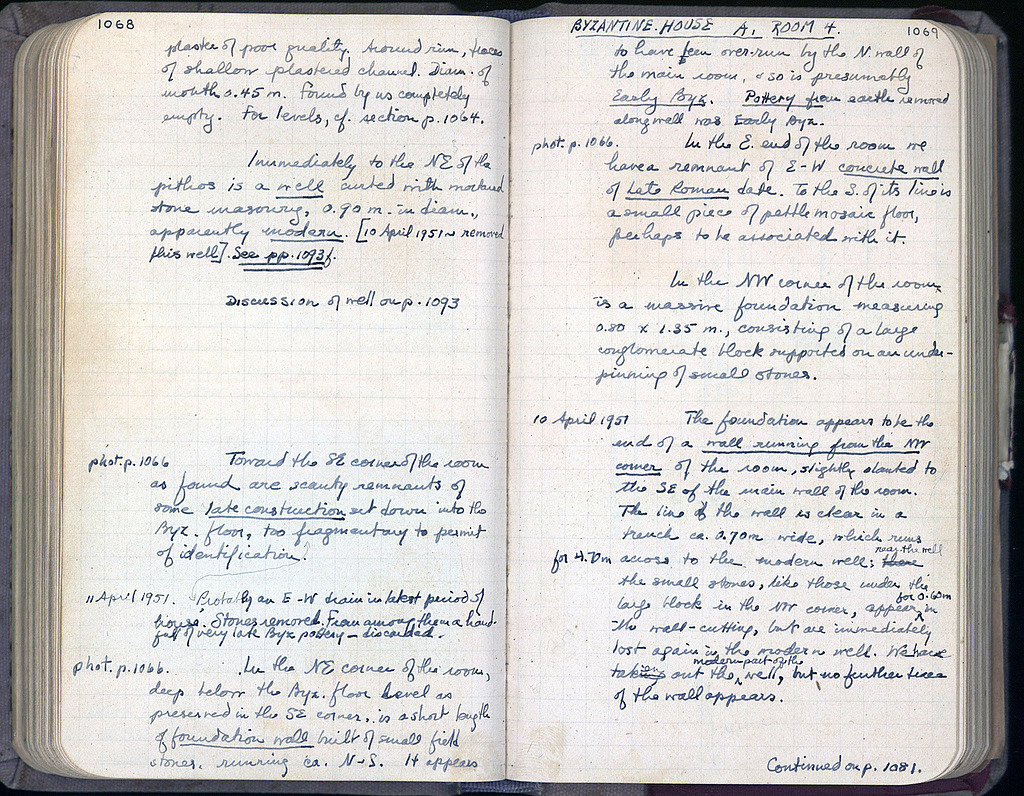 1068
plaster of poor quality. Around rim, traces
of shallow plastered channel. Diam. of
mouth 0.45 m. Found by us completely
empty. For levels, cf. section p. 1064.
Immediately to the NE of the
pithos is a well curbed with mortared
stone masonry, 0.90 m. in diam.,
apparently modern. [10 April 1951 removed
this well]. See pp. 1093f.
Discussion of well on p. 1093
phot. p. 1066 Toward the SE corner of the room
as found are scanty remnants of
some late construction set down into the
Byz. floor, too fragmentary to permit
of identification.
11 April 1951. Probably an E-W drain in latest period of
house. Stones removed. From among them a hand-
full of very late Byz pottery - discarded.
phot. p. 1066. In the NE corner of the room,
deep below the Byz. floor level as
preserved in the SE corner, is a short length
of foundation wall built of small field
stones, running ca. N-S. It appears
BYZANTINE HOUSE A, ROOM 4. 1069
to have been over-run by the N. wall of
the main room, & so is presumably
Early Byz. Pottery from earth removed
along wall was Early Byz.
phot. p. 1066. In the E. end of the room we
have a remnant of E-W concrete wall
of Late Roman date. To the S. of its line is
a small piece of pebble mosaic floor,
perhaps to be associated with it.
In the NW corner of the room
is a massive foundation measuring
0.80 x 1.35 m., consisting of a large
conglomerate block supported on an under-
pinning of small stones.
10 April 1951 The foundation appears to be the
end of a wall running from the NW
corner of the room, slightly slanted to
the SE of the main wall of the room.
The line of the wall is clear in a
trench ca. 0.70m wide, which runs
for 4.70m across to the modern well; there near the well
the small stones, like those under the
large block in the NW corner, appear for 0.60m in
the wall-cutting, but are immediately
lost again in the modern well. We have
taken out the modern part of the well, but no further trace
of the wall appears.
Continued on p. 1081.